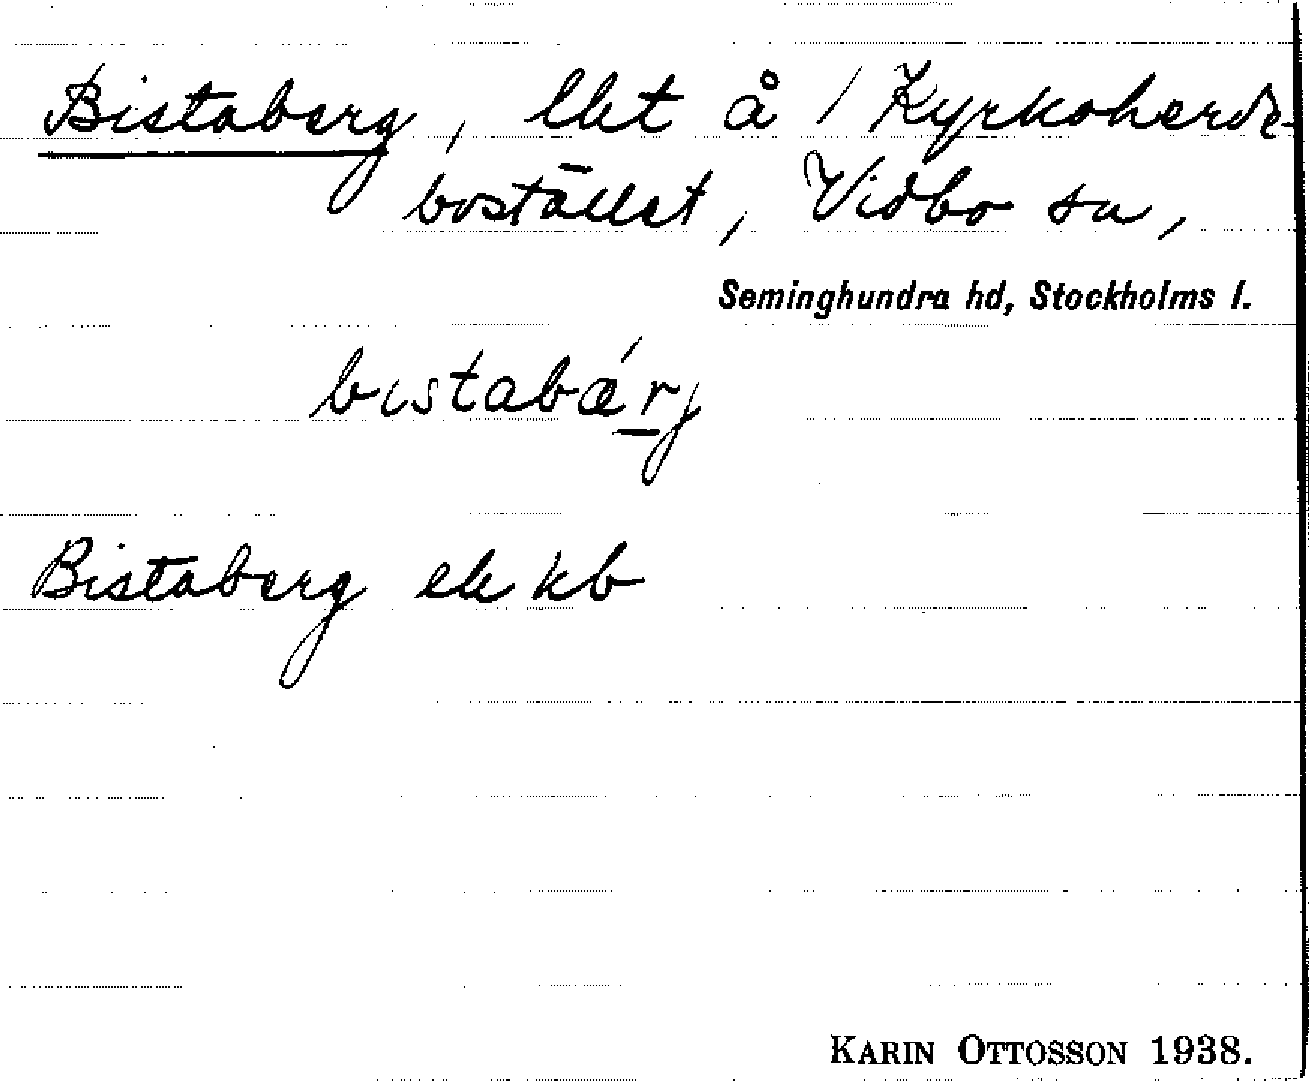 Bistaberg, lht å 1 Kyrkoherde-
bostället, Vidbo sn,
Seminghundra hd, Stockholms l.
bistabǽrj
Bistaberg ek kb
KARIN OTTOSSON 1938.